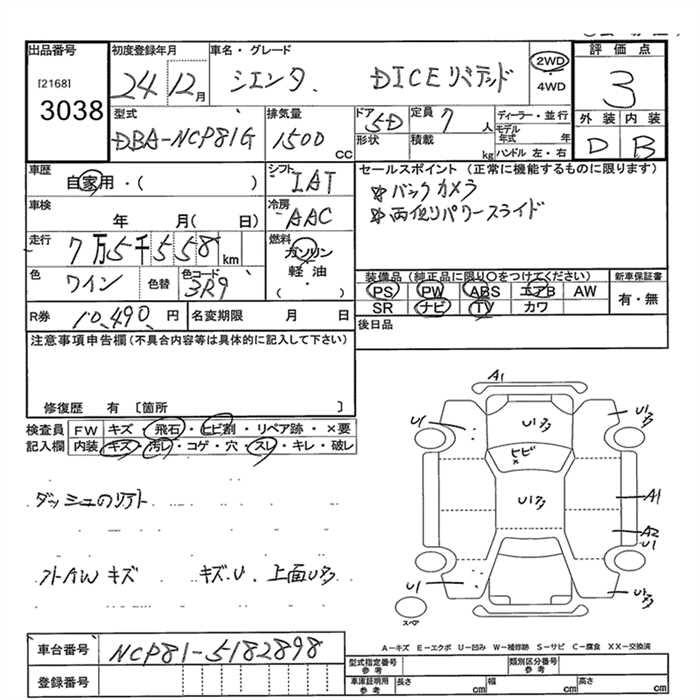 出品番号 初度登録年月 車名・グレード 2WD・4WD 評価点
[2168]
3038 24 12月 シエンタ DICEリミテッド 3
型式 排気量 ドア 5D 定員 7人 ディーラー・並行 外装 内装
DBA-NCP81G 1500cc 形状 積載 kg モデル年式 年 D B
ハンドル 左・右
車歴 自家用・( ) シフト IAT セールスポイント (正常に機能するものに限ります)
車検 年 月( 日) 冷房 AAC バックカメラ
両側パワースライド
走行 7万5千558km 燃料 ガソリン 軽油・( )
色 ワイン 色替 色コード 3R9 装備品 (純正品に限り○をつけてください) 新車保証書
PS PW ABS エアB AW 有・無
SR ナビ TV カワ
R券 10,490円 名変期限 月 日 後日品
注意事項申告欄(不具合内容等は具体的に記入して下さい)
修復歴 有 〔箇所 〕
検査員 FW キズ・飛石・ヒビ割・リペア跡・×要
記入欄 内装 キズ・汚レ・コゲ・穴・スレ・キレ・破レ
A1
U1 U1 U1
ヒビ
×
U1
A1
A2
U1
U1 U1
スペア
キズ
キズ、U、上面U
A-キズ E-エクボ U-凹み W-補修跡 S-サビ C-腐食 XX-交換済
車台番号 NCP81-5182898
登録番号
型式指定番号 参考 類別区分番号 参考
車庫証明用 参考 長さ cm 幅 cm 高さ cm